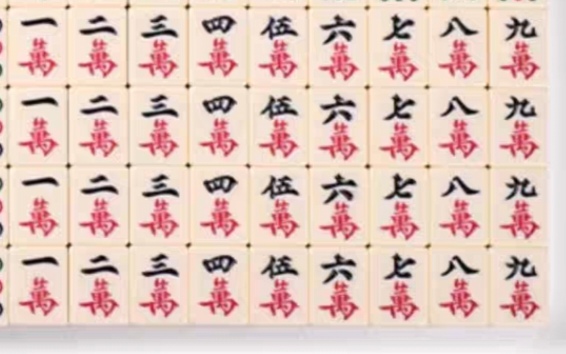 一 二 三 四 伍 六 七 八 九
萬 萬 萬 萬 萬 萬 萬 萬 萬
一 二 三 四 伍 六 七 八 九
萬 萬 萬 萬 萬 萬 萬 萬 萬
一 二 三 四 伍 六 七 八 九
萬 萬 萬 萬 萬 萬 萬 萬 萬
一 二 三 四 伍 六 七 八 九
萬 萬 萬 萬 萬 萬 萬 萬 萬